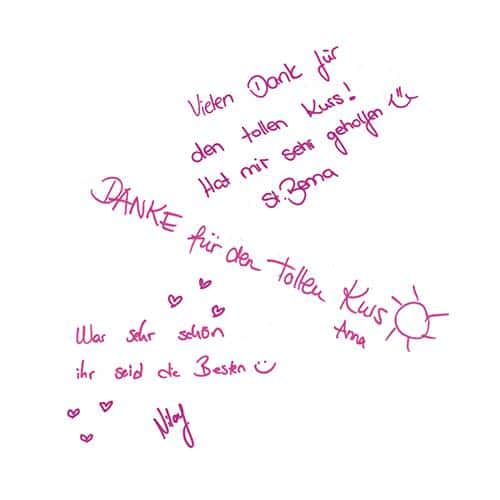 Vielen Dank für
den tollen Kurs!
Hat mir sehr geholfen
DANKE für den tollen Kurs
Anna
War sehr schön
ihr seid die Besten